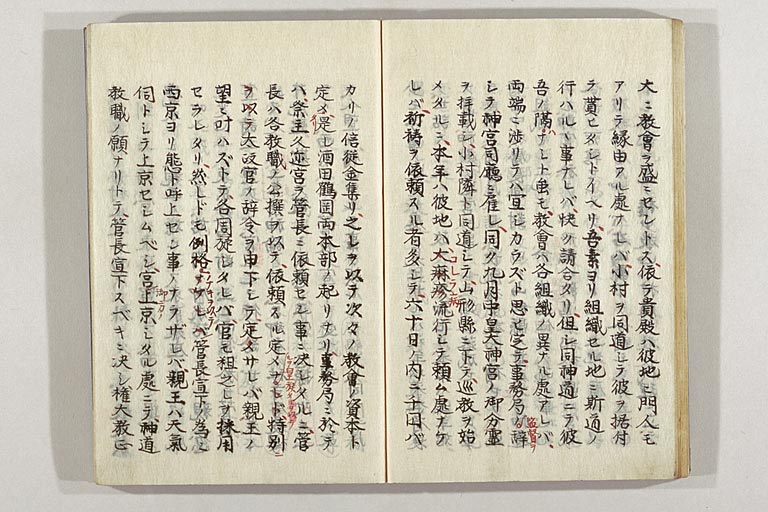 大ニ教會ヲ盛ニセントス依テ貴殿ハ彼地ニ門人モ
アリテ縁由アル處ナレバ小村ヲ同道シテ彼ヲ据付
ラ貰ヒタシトイヘリ吾素ヨリ組織セル地ニ斯道ノ
行ハルヽ事ナレバ快ク請合タリ但シ同神道ニテ彼
吾ノ隔ハナシト虽モ教會ハ各組織ノ異ナル處アレバ
両端ニ渉リテハ宜シカラズト思ヒ定テ事務局ノ辞
監督ヲ
シテ神宮司廳ニ崔シ同ク九月中皇大神宮ノ御分靈
ヲ拝載シ小村隣ト同道シテ山形縣ニ下テ巡教ヲ始
メタルニ本年ハ彼地ハ大麻疹流行シテ頼ム處ナケ
コレラ病
レバ祈祷ヲ依頼スル者多クシテ六十日ノ内ニ千円バ
カリノ信徒金集リ之レヲ以テ次々ノ教會ノ資本ト
定メ是レ酒田鶴岡両本部ノ起リナリ事務局ニ於テ
ハ祭主久邇宮ヲ管長ニ依頼セン事ニ决シタルニ管
長ハ各教職ノ公撰ヲ以テ依頼スル定メナレド特別
ヲ以テ太政官ノ辞令ヲ申下シテ定メサレバ親王ノ
望ニ叶ハズトテ各周旋シタレバ官モ祖之レヲ採用
セラレタリ然レドモ例格ナケレバ管長宣下ノ為ニ
西京ヨリ態ト呼上セン事ハナラザレバ親王ハ天氣
伺トシテ上京セシムベシ宮上京シタル處ニテ神道
御
教職ノ願ナリトテ管長宣下スベキニ决シ權大教正